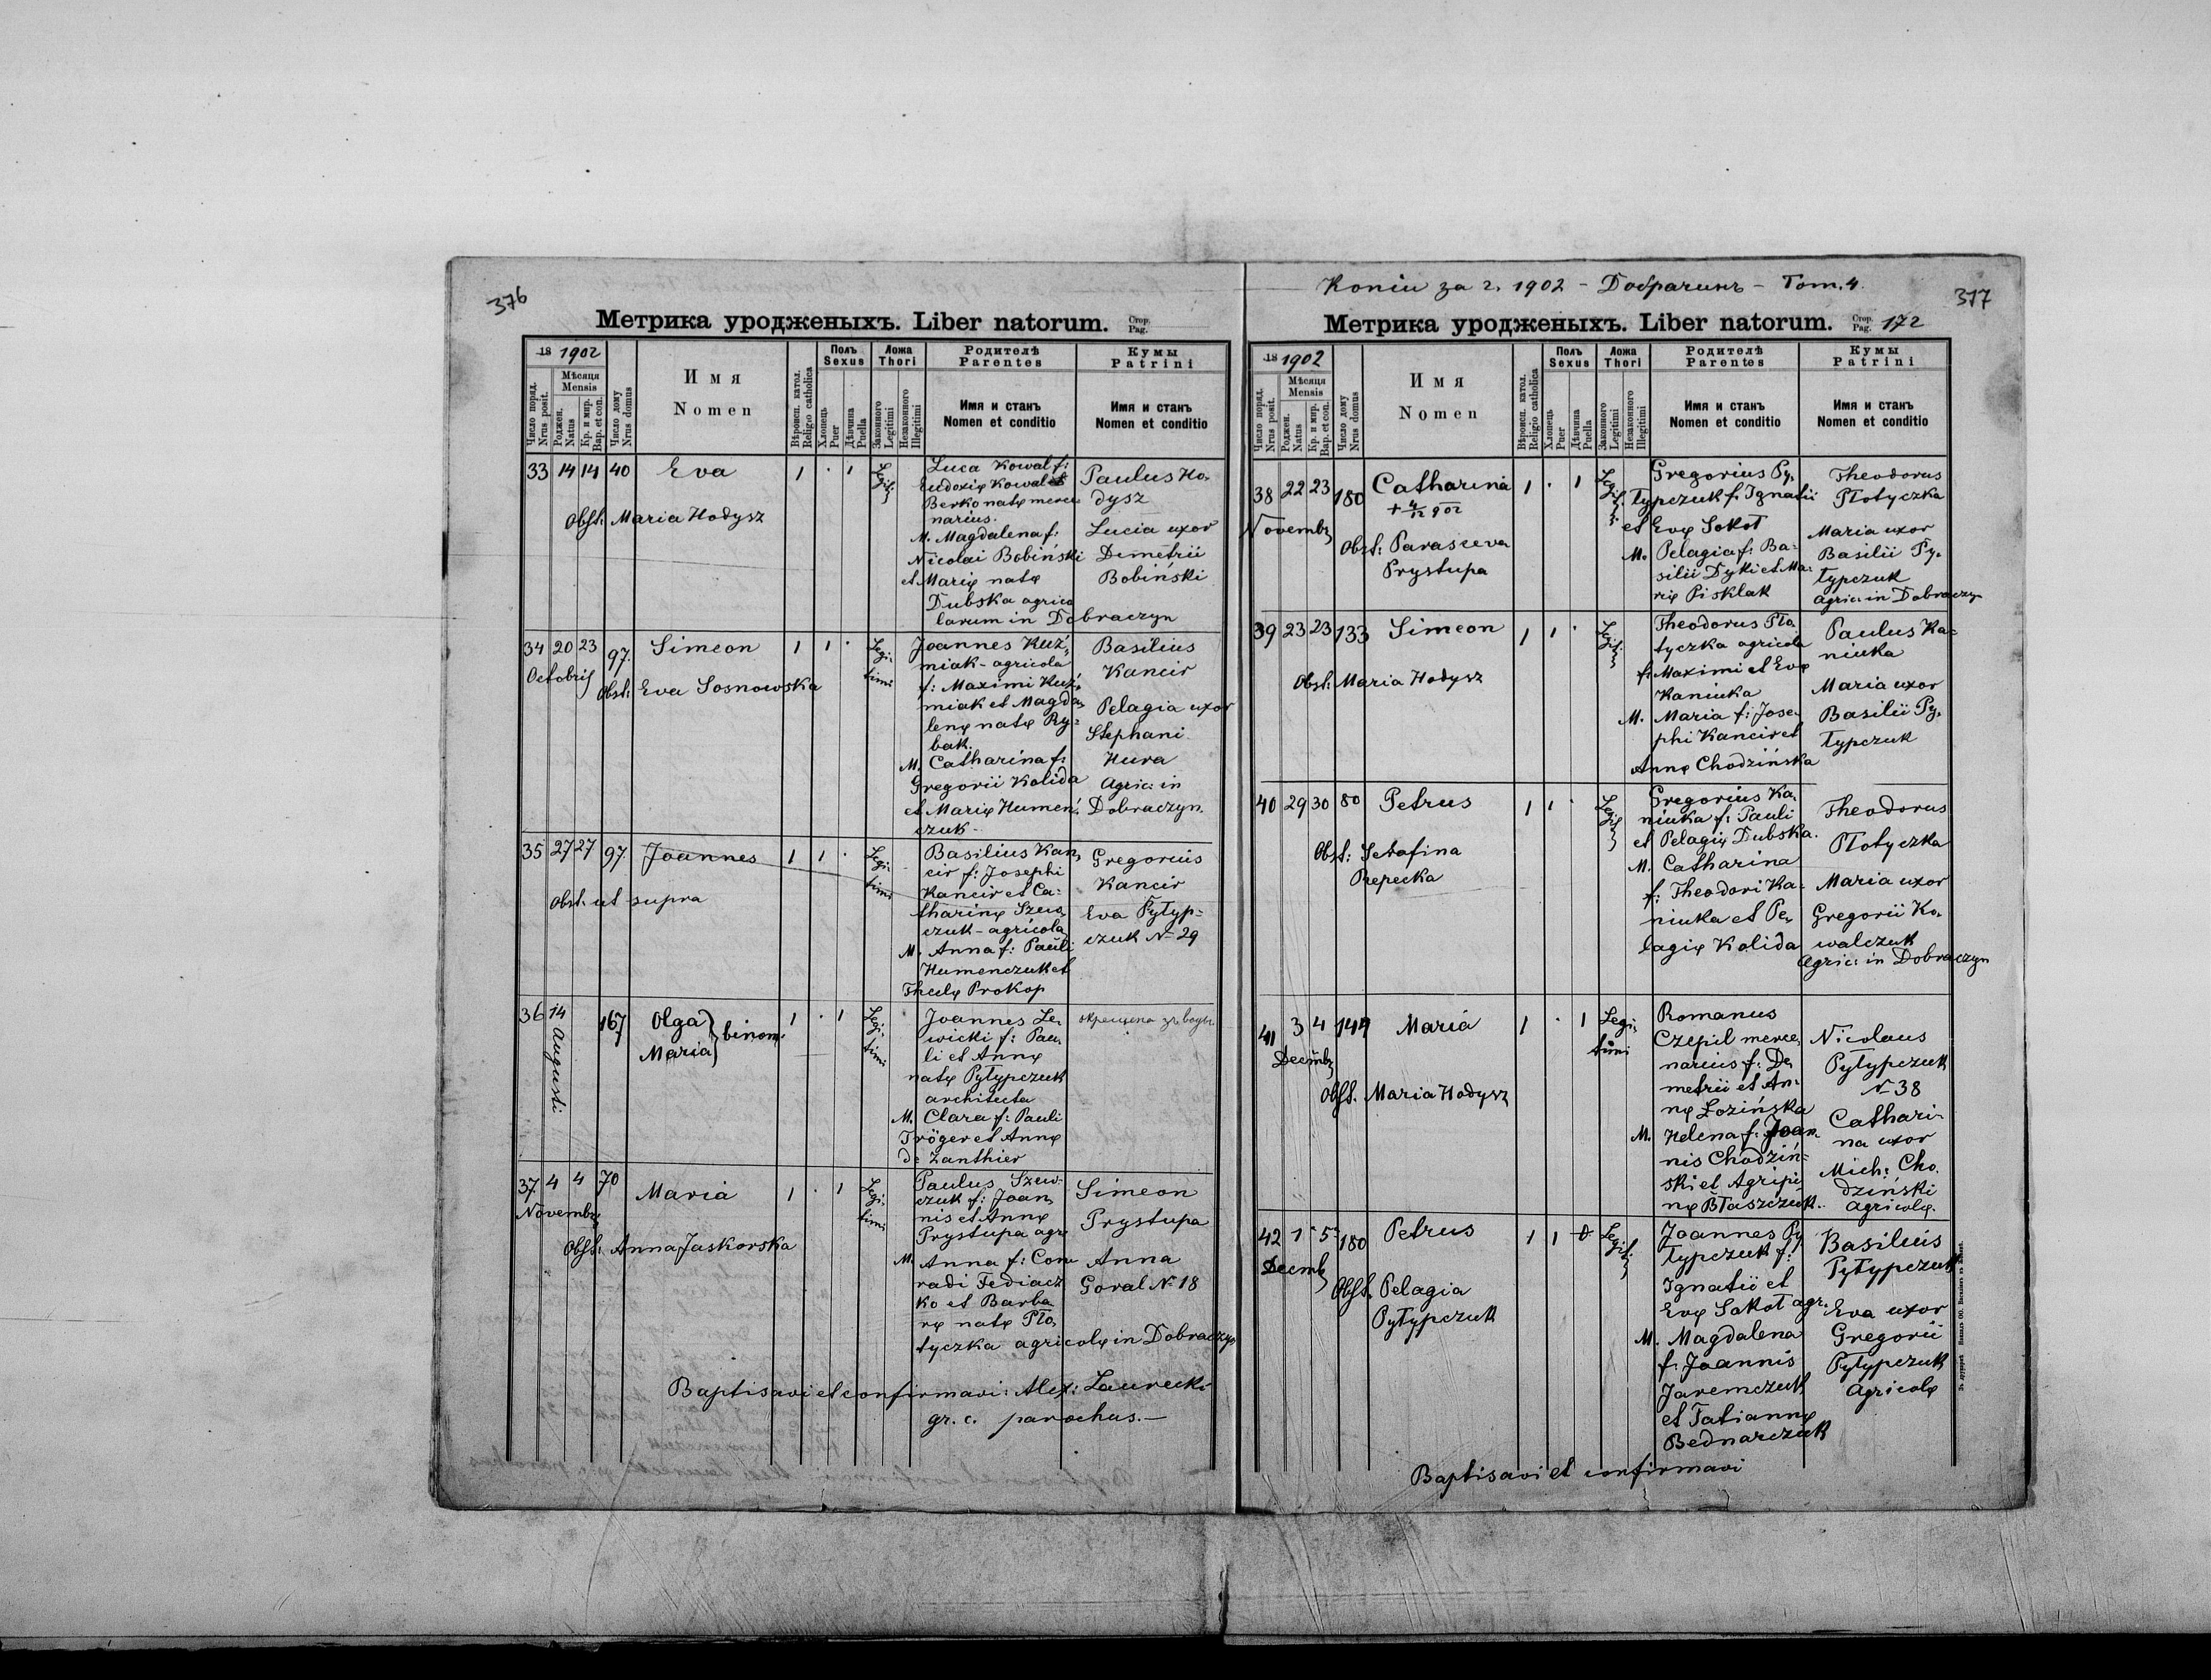 376
Метрика уродженыхъ. Liber natorum. Стор. Pag.
18 1902
Число поряд. Nrus posit.
Мѣсяця Mensis
Роджен. Natus
Кр. и мир. Bap. et con.
Число дому Nrus domus
Имя
Nomen
Вѣроисп. катол. Religio catholica
Полъ Sexus
Хлопець Puer
Дѣвчина Puella
Ложа Thori
Законного Legitimi
Незаконного Illegitimi
Родителѣ Parentes
Имя и станъ
Nomen et conditio
Кумы Patrini
Имя и станъ
Nomen et conditio
33 14 14 40 Eva 1 · 1 Legit:
Obst: Maria Hodysz
Luca Kowal f:
Eudoxię Kowal et
Berko natę merce
narius.
M. Magdalena f:
Nicolai Bobiński
et Marię natę
Dubska agrico
larum in Dobraczyn
Paulus Ho-
dysz
Lucia uxor
Demetrii
Bobiński
34 20 23 97. Simeon 1 1 · Legi-
timi
Octobris
Obst: Eva Sosnowska
Joannes Kuź-
miak - agricola
f: Maximi Kuź-
miak et Magda-
lenę natę Ry-
bak.
M. Catharina f:
Gregorii Kolida
et Marię Humeń-
czuk -
Basilius
Kancir
Pelagia uxor
Stephani
Hura
Agric: in
Dobraczyn.
35 27 27 97. Joannes 1 1 · Legi-
timi
Obst. ut supra
Basilius Kan-
cir f: Josephi
Kancir et Ca-
tharinę Szew-
czuk - agricola
M. Anna f: Pauli
Humenczuk et
Theclę Prokop
Gregorius
Kancir
Eva Pyłyp-
czuk N 29
36 14 Augusti 167 Olga
Maria } binom: 1 · 1 Legi-
timi
Joannes Le-
wicki f: Pau-
li et Annę
natę Pyłypczuk
architecta
M. Clara f: Pauli
Tröger et Annę
de Zanthier
окрещена зъ воды
37 4 4 70 Maria 1 · 1 Legi-
timi
Novembr
Obst: Anna Jaskorska
Paulus Szew-
czuk f: Joan-
nis et Annę
Prystupa agr
M. Anna f: Con-
radi Fediacz
ko et Barba
rę natę Pło-
tyczka agricolę in Dobraczyn
Simeon
Prystupa
Anna
Goral N 18
Baptisavi et confirmavi: Alex: Laurecki
gr. c. parochus. —
Копіи за г. 1902 - Добрачинъ - Том. 4.
377
Метрика уродженыхъ. Liber natorum. Стор. Pag. 172
18 1902
Число поряд. Nrus posit.
Мѣсяця Mensis
Роджен. Natus
Кр. и мир. Bap. et con.
Число дому Nrus domus
Имя
Nomen
Вѣроисп. катол. Religio catholica
Полъ Sexus
Хлопець Puer
Дѣвчина Puella
Ложа Thori
Законного Legitimi
Незаконного Illegitimi
Родителѣ Parentes
Имя и станъ
Nomen et conditio
Кумы Patrini
Имя и станъ
Nomen et conditio
38 22 23 180 Catharina 1 · 1 Legit:
+ 4/12 902
Novembr
Obst: Parasceva
Prystupa
Gregorius Py-
łypczuk f: Ignatii
et Evę Sokoł
M. Pelagia f: Ba-
silii Dyki et Ma-
rię Pisklak
Theodorus
Płotyczka
Maria uxor
Basilii Py-
łypczuk
agric: in Dobraczyn
39 23 23 133 Simeon 1 1 · Legit:
Obst: Maria Hodysz
Theodorus Pło-
tyczka agricola
f: Maximi et Evę
Kaniuka
M. Maria f: Jose-
phi Kancir et
Annę Chodzińska
Paulus Ka-
niuka
Maria uxor
Basilii Py-
łypczuk
40 29 30 80 Petrus 1 1 · Legit
Obst: Serafina
Rzepecka
Gregorius Ka-
niuka f: Pauli
et Pelagię Dubska.
M. Catharina
f: Theodori Ka-
niuka et Pe-
lagię Kolida
Theodorus
Płotyczka
Maria uxor
Gregorii Ko-
walczuk
Agric: in Dobraczyn
41 3 4 149 Maria 1 · 1 Legi-
timi
Decembr
Obst. Maria Hodysz
Romanus
Czepil merce-
narius f: De
metrii et An-
nę Łozińska
M. Helena f: Joan-
nis Chodziń-
ski et Agripi-
nę Błaszczuk.
Nicolaus
Pyłypczuk
N 38
Cathari-
na uxor
Mich: Cho-
dziński
agricolę.
42 1 5 180 Petrus 1 1 Legit:
Decemb
Obst. Pelagia
Pyłypczuk
Joannes Py
łypczuk f:
Ignatii et
Evę Sokoł agr.
M. Magdalena
f: Joannis
Jaremczuk
et Tatiannę
Bednarczuk
Basilius
Pyłypczuk
Eva uxor
Gregorii
Pyłypczuk
Agricolę
Baptisavi et confirmavi